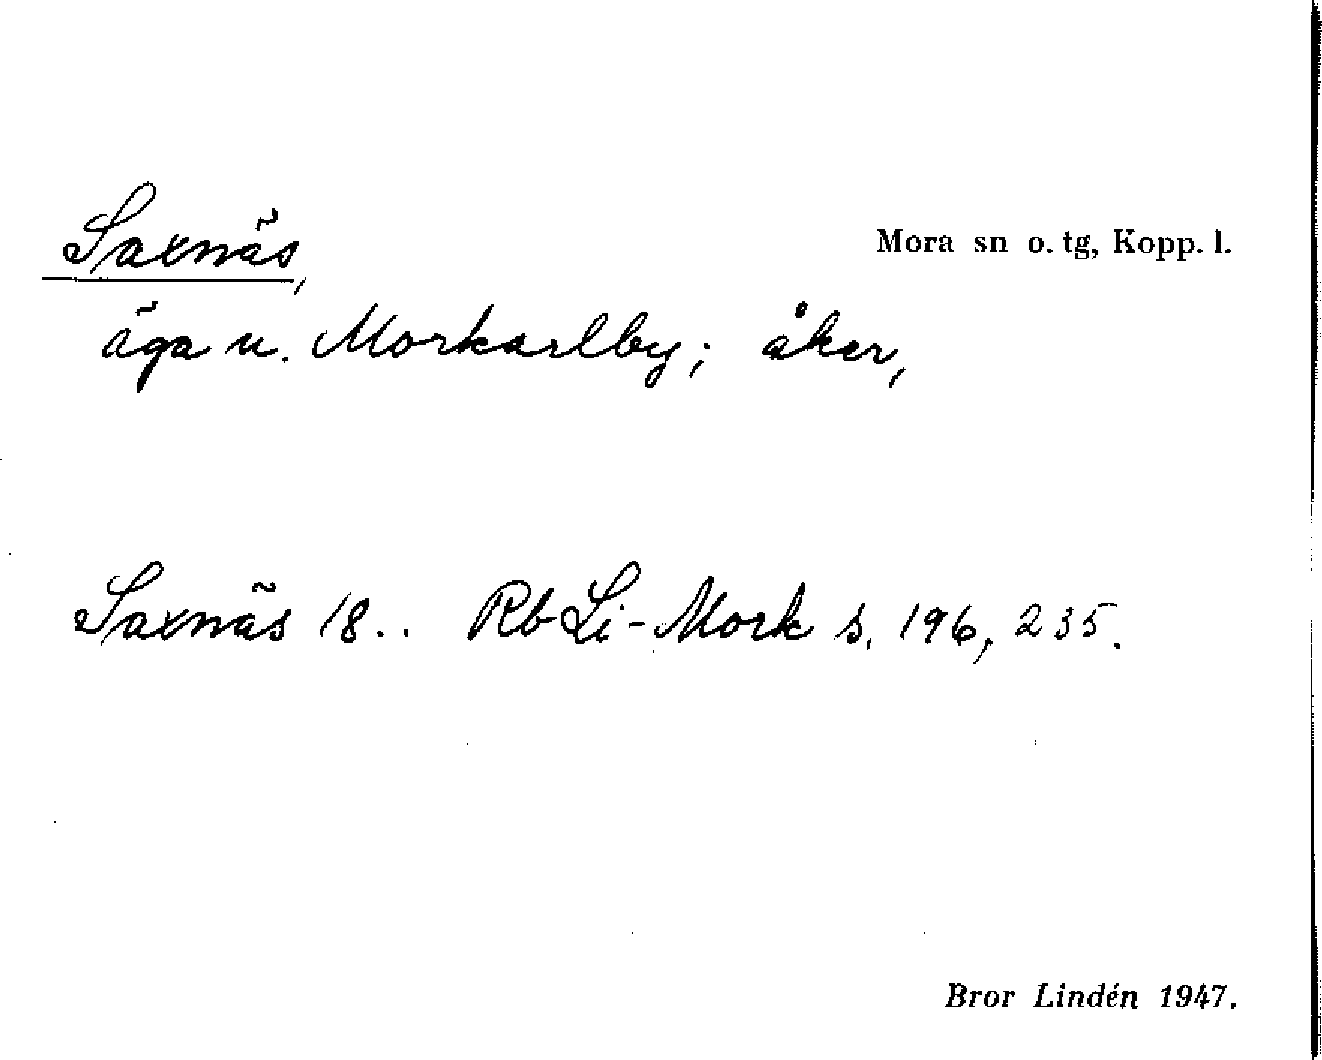 Saxnäs,
Mora sn o. tg, Kopp. l.
äga u. Morkarlby; åker,
Saxnäs 18.. Rb Li-Mork s. 196, 235.
Bror Lindén 1947.